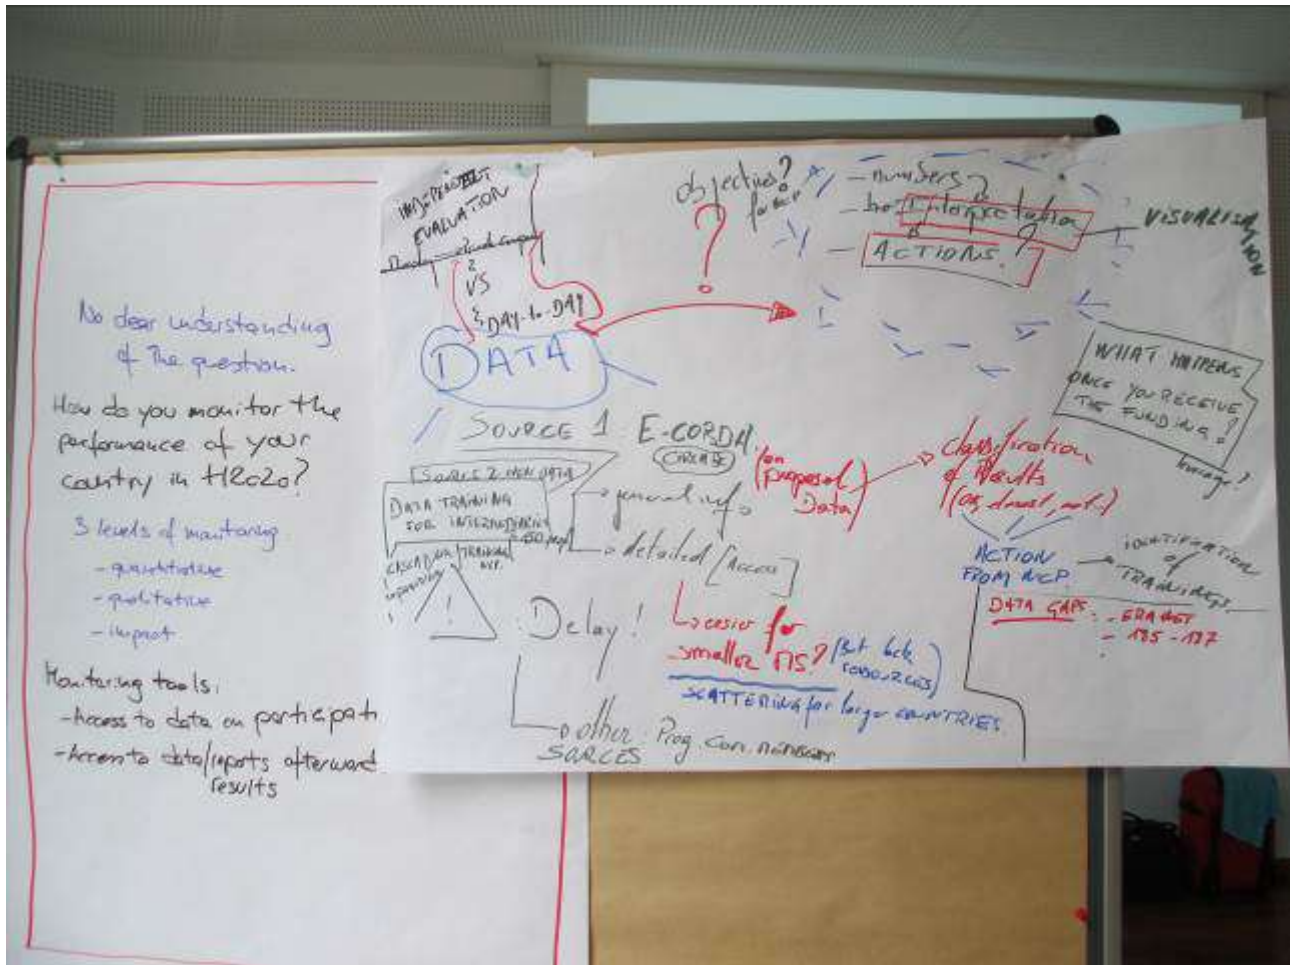 No clear understanding
of the question.
How do you monitor the
performance of your
country in H2020?
3 levels of monitoring
- quantitative
- qualitative
- impact
Monitoring tools:
- Access to data on participati
- Access to data/reports afterward
results
INDEPENDENT
EVALUATION
VS
DAY-to-DAY
DATA
objectives?
for NCP
?
- numbers?
- Interpretation
- ACTIONS?
VISUALISATION
WHAT HAPPENS
ONCE YOU RECEIVE
THE FUNDING?
SOURCE 1
E-CORDA
SOURCE 2 NON DATA
DATA TRAINING
FOR INTERMEDIARIES
CASCADING
TRAINING
!
general info
detailed [Access]
(on
proposal
Data)
classification
of Results
ACTION
FROM NCP
IDENTIFICATION
of
TRAININGS
DATA GAPS: - ERANET
- 185-187
Delay!
easier for
smaller MS?
(But lack
RESOURCES)
SCATTERING for larger COUNTRIES
other
SORCES
Prog. Com.